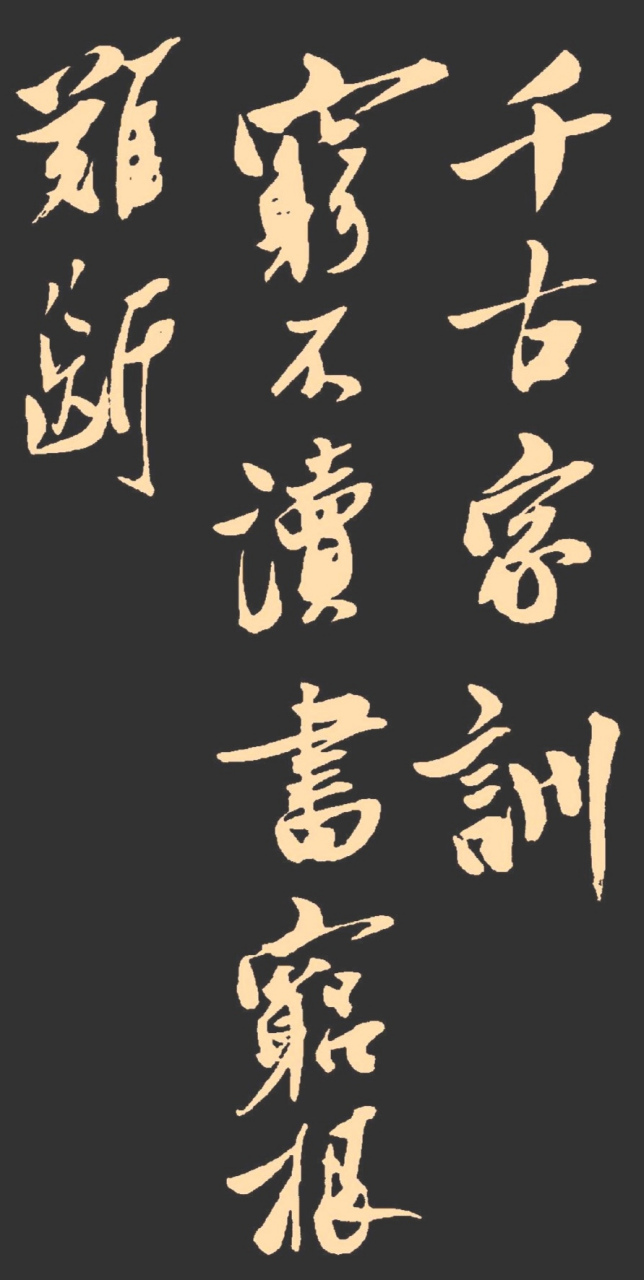 千古字訓
窮不讀書窮根
難斷